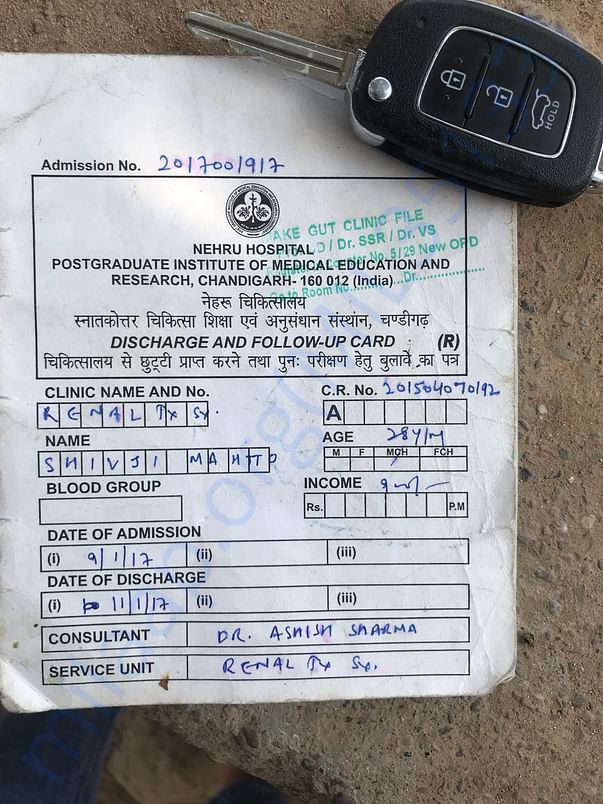 HOLD
Admission No. 2017001917
NEHRU HOSPITAL
POSTGRADUATE INSTITUTE OF MEDICAL EDUCATION AND
RESEARCH, CHANDIGARH- 160 012 (India)
AKE GUT CLINIC FILE
D / Dr. SSR / Dr. VS
No. 5/29 New OPD
Go to Room No. Dr.
नेहरू चिकित्सालय
स्नातकोत्तर चिकित्सा शिक्षा एवं अनुसंधान संस्थान, चण्डीगढ़
DISCHARGE AND FOLLOW-UP CARD (R)
चिकित्सालय से छुट्टी प्राप्त करने तथा पुनः परीक्षण हेतु बुलावे का पत्र
CLINIC NAME AND No. C.R. No. 201504070192
RENAL Tx Sx. A
NAME AGE 28Y/M
SHIVJI MAHTO M F MCH FCH
BLOOD GROUP INCOME
Rs. P.M
DATE OF ADMISSION
(i) 9/1/17 (ii) (iii)
DATE OF DISCHARGE
(i) 11/1/17 (ii) (iii)
CONSULTANT DR. ASHISH SHARMA
SERVICE UNIT RENAL Tx Sx.